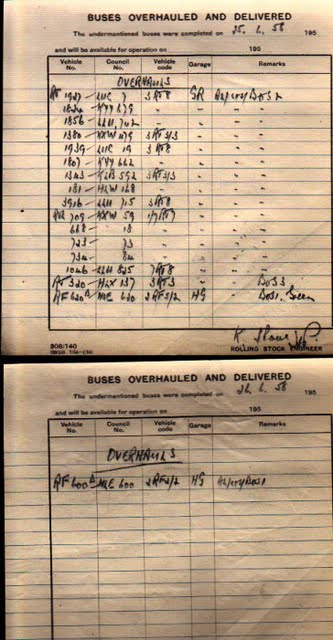 BUSES OVERHAULED AND DELIVERED
The undermentioned buses were completed on 25.6.58 195
and will be available for operation on 195
Vehicle No. Council No. Vehicle code Garage Remarks
OVERHAULS
RT 1937 LUC 7 3RT8 GR
1824 KYY 679 " " "
1856 LLU 742 " " "
1380 KXW 479 3RT3/3 " "
1939 LUC 19 3RT8 " "
1807 KYY 662 " " "
1343 KLB 592 3RT3/3 " "
181 HLW 168 " " "
3916 LLU 715 3RT8 " "
709 KXW 59
668 18 " " "
723 73 " " "
734 84 " " "
1046 LLU 825 7RT8 " "
RT 320 HLX 137 3RT3 " BoS3
RF 620 A NLE 620 2RF2/2 HG Green
806/140
ROLLING STOCK ENGINEER
BUSES OVERHAULED AND DELIVERED
The undermentioned buses were completed on 26.6.58 195
and will be available for operation on 195
Vehicle No. Council No. Vehicle code Garage Remarks
OVERHAULS
RF 600 A NLE 600 2RF2/2 HG